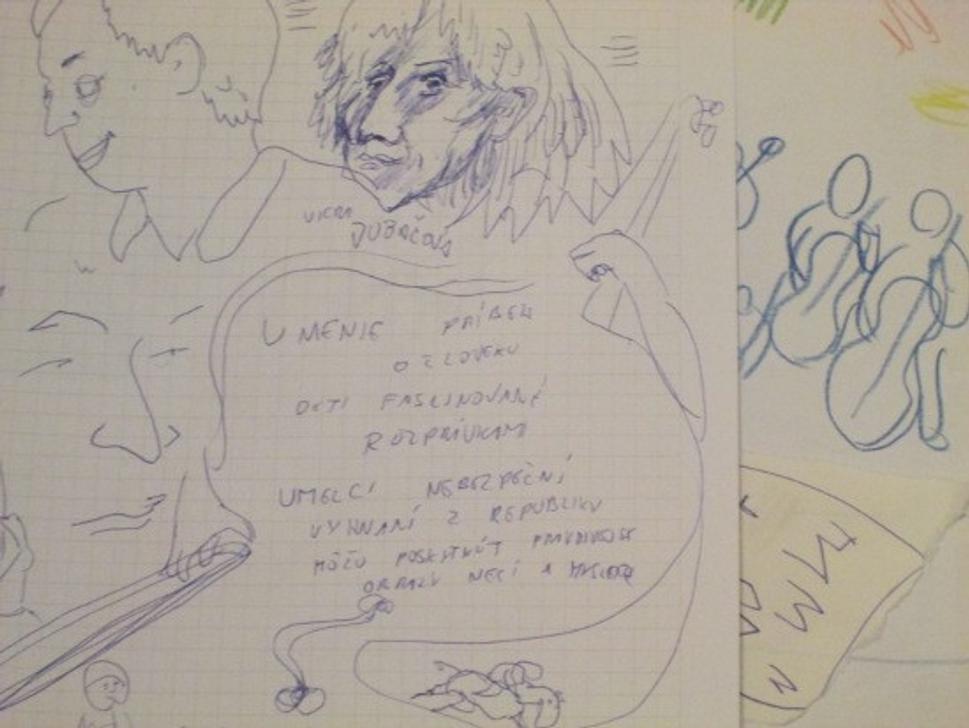 VIERA
DUBAČOVÁ
UMENIE PRÍBEH
O ČLOVEKU
DETI FASCINOVANÉ
ROZPRÁVKAMI
UMELCI NEBEZPEČNÍ
VYHNANÍ Z REPUBLIKY
MÔŽU POSKYTNÚŤ
OBRAZY VECÍ A